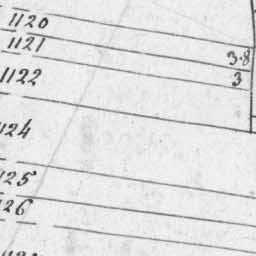 1120
1121
3.8
1122
3
124
125
126